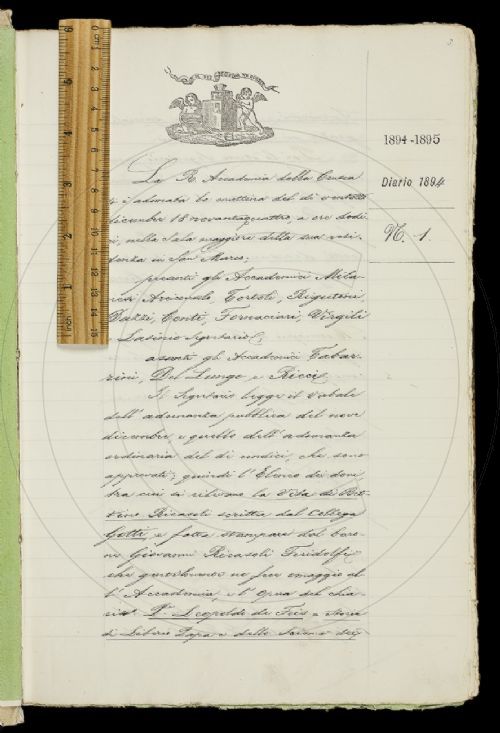 3
1894-1895
Diario 1894
N. 1.
La R. Accademia della Crusca
si è adunata la mattina del dì
dicembre 18 novantaquattro, a ore dodi-
ci, nella Sala maggiore della sua resi-
denza in San Marco;
presenti gli Accademici Mila-
Arcivescovo, Tortoli, Rigutini,
Dazzi, Conti, Fornaciari, Virgili
Lasinio Segretario;
assenti gli Accademici Tabar-
rini, Del Lungo e Ricci.
Il Segretario legge il Verbale
dell'adunanza pubblica del nove
dicembre, e quello dell'adunanza
ordinaria del dì undici, che sono
approvati; quindi l'Elenco dei doni
tra cui si la Vita di Bet-
tino Ricasoli scritta dal Collega
Gotti, e fatta stampare dal baro-
ne Giovanni Ricasoli Firidolfi,
che omaggio al-
l'Accademia, e l'Opera del chia-
Leopoldo de Feis Storia
di Liberio Papa e dello